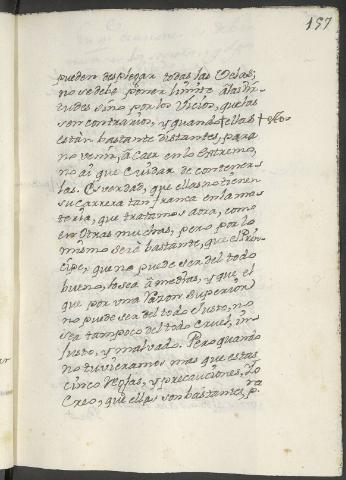 157
pueden desplegar todas las Velas;
no se debe poner limite à las Vir
tudes sino por los Vicios, que las
son contrarios, y quando ellas
estàn bastante distantes, para
no venir, à Caer en lo Extremo,
no ai que Cuidar de contener
las. Es verdad, que ellas no tienen
su Carrera tan franca en la ma
teria, que tratamos aora, como
en Otras muchas, pero por lo
mismo serà bastante, que el Prin
cipe, que no puede ser del todo
bueno, lo sea à medias, y que el
que por una Razon superior
no puede ser del todo Justo, no
sea tampoco del todo Cruel, in
Justo, y malvado. Pero quando
no tuvieramos mas que estas
cinco Reglas, y precauciones, Yo
Creo, que ellas son bastantes, pa
ra